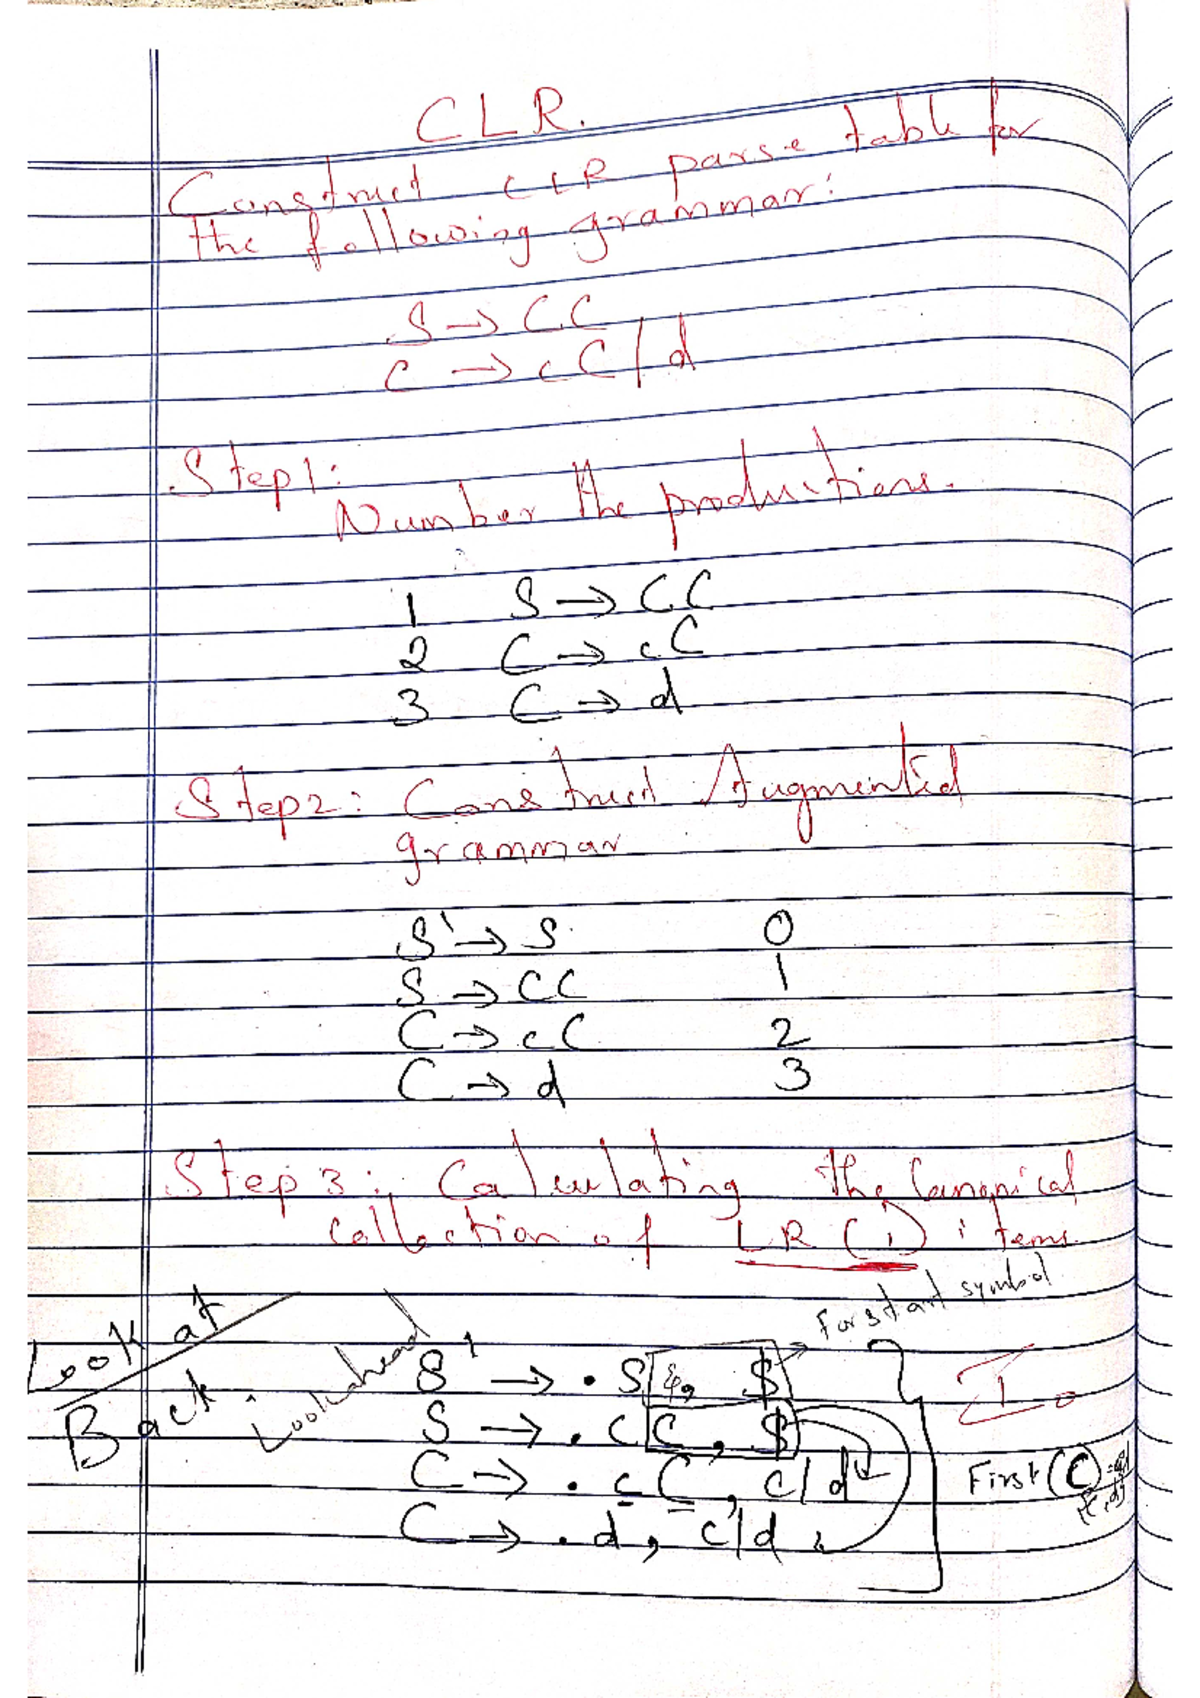 CLR.
Construct CLR parse table for
the following grammar:
S → CC
C → cC/d
Step1:
Number the productions.
1 S → CC
2 C → cC
3 C → d
Step2: Construct Augmented
grammar
S' → S 0
S → CC 1
C → cC 2
C → d 3
Step 3: Calculating the Canonical
collection of LR (1) items
For start symbol
Look at
Back.
Lookahead
S' → .S , $
S → .CC , $
C → .cC , c/d
C → .d, c/d
I0
First (C)